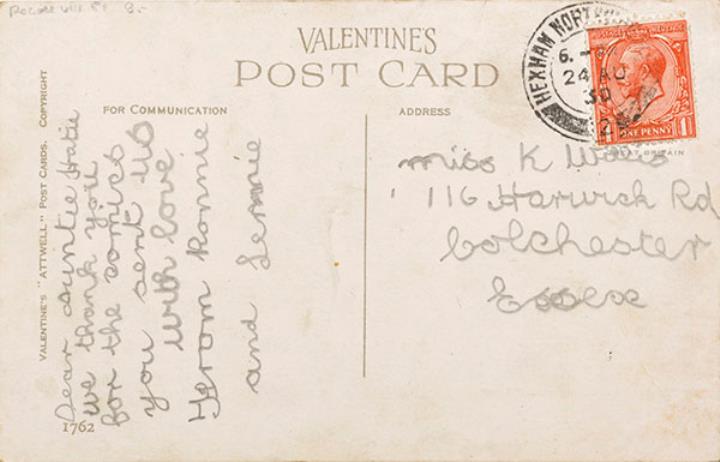 VALENTINE'S
POST CARD
FOR COMMUNICATION
ADDRESS
VALENTINE'S "ATTWELL" POST CARDS. COPYRIGHT
1762
Dear Auntie Katie
we thank you
for the comics
you sent us
with love
from Ronnie
and Lennie
HEXHAM
24 AU
30
ONE PENNY
Miss K
116 Harwich Rd
Colchester
Essex